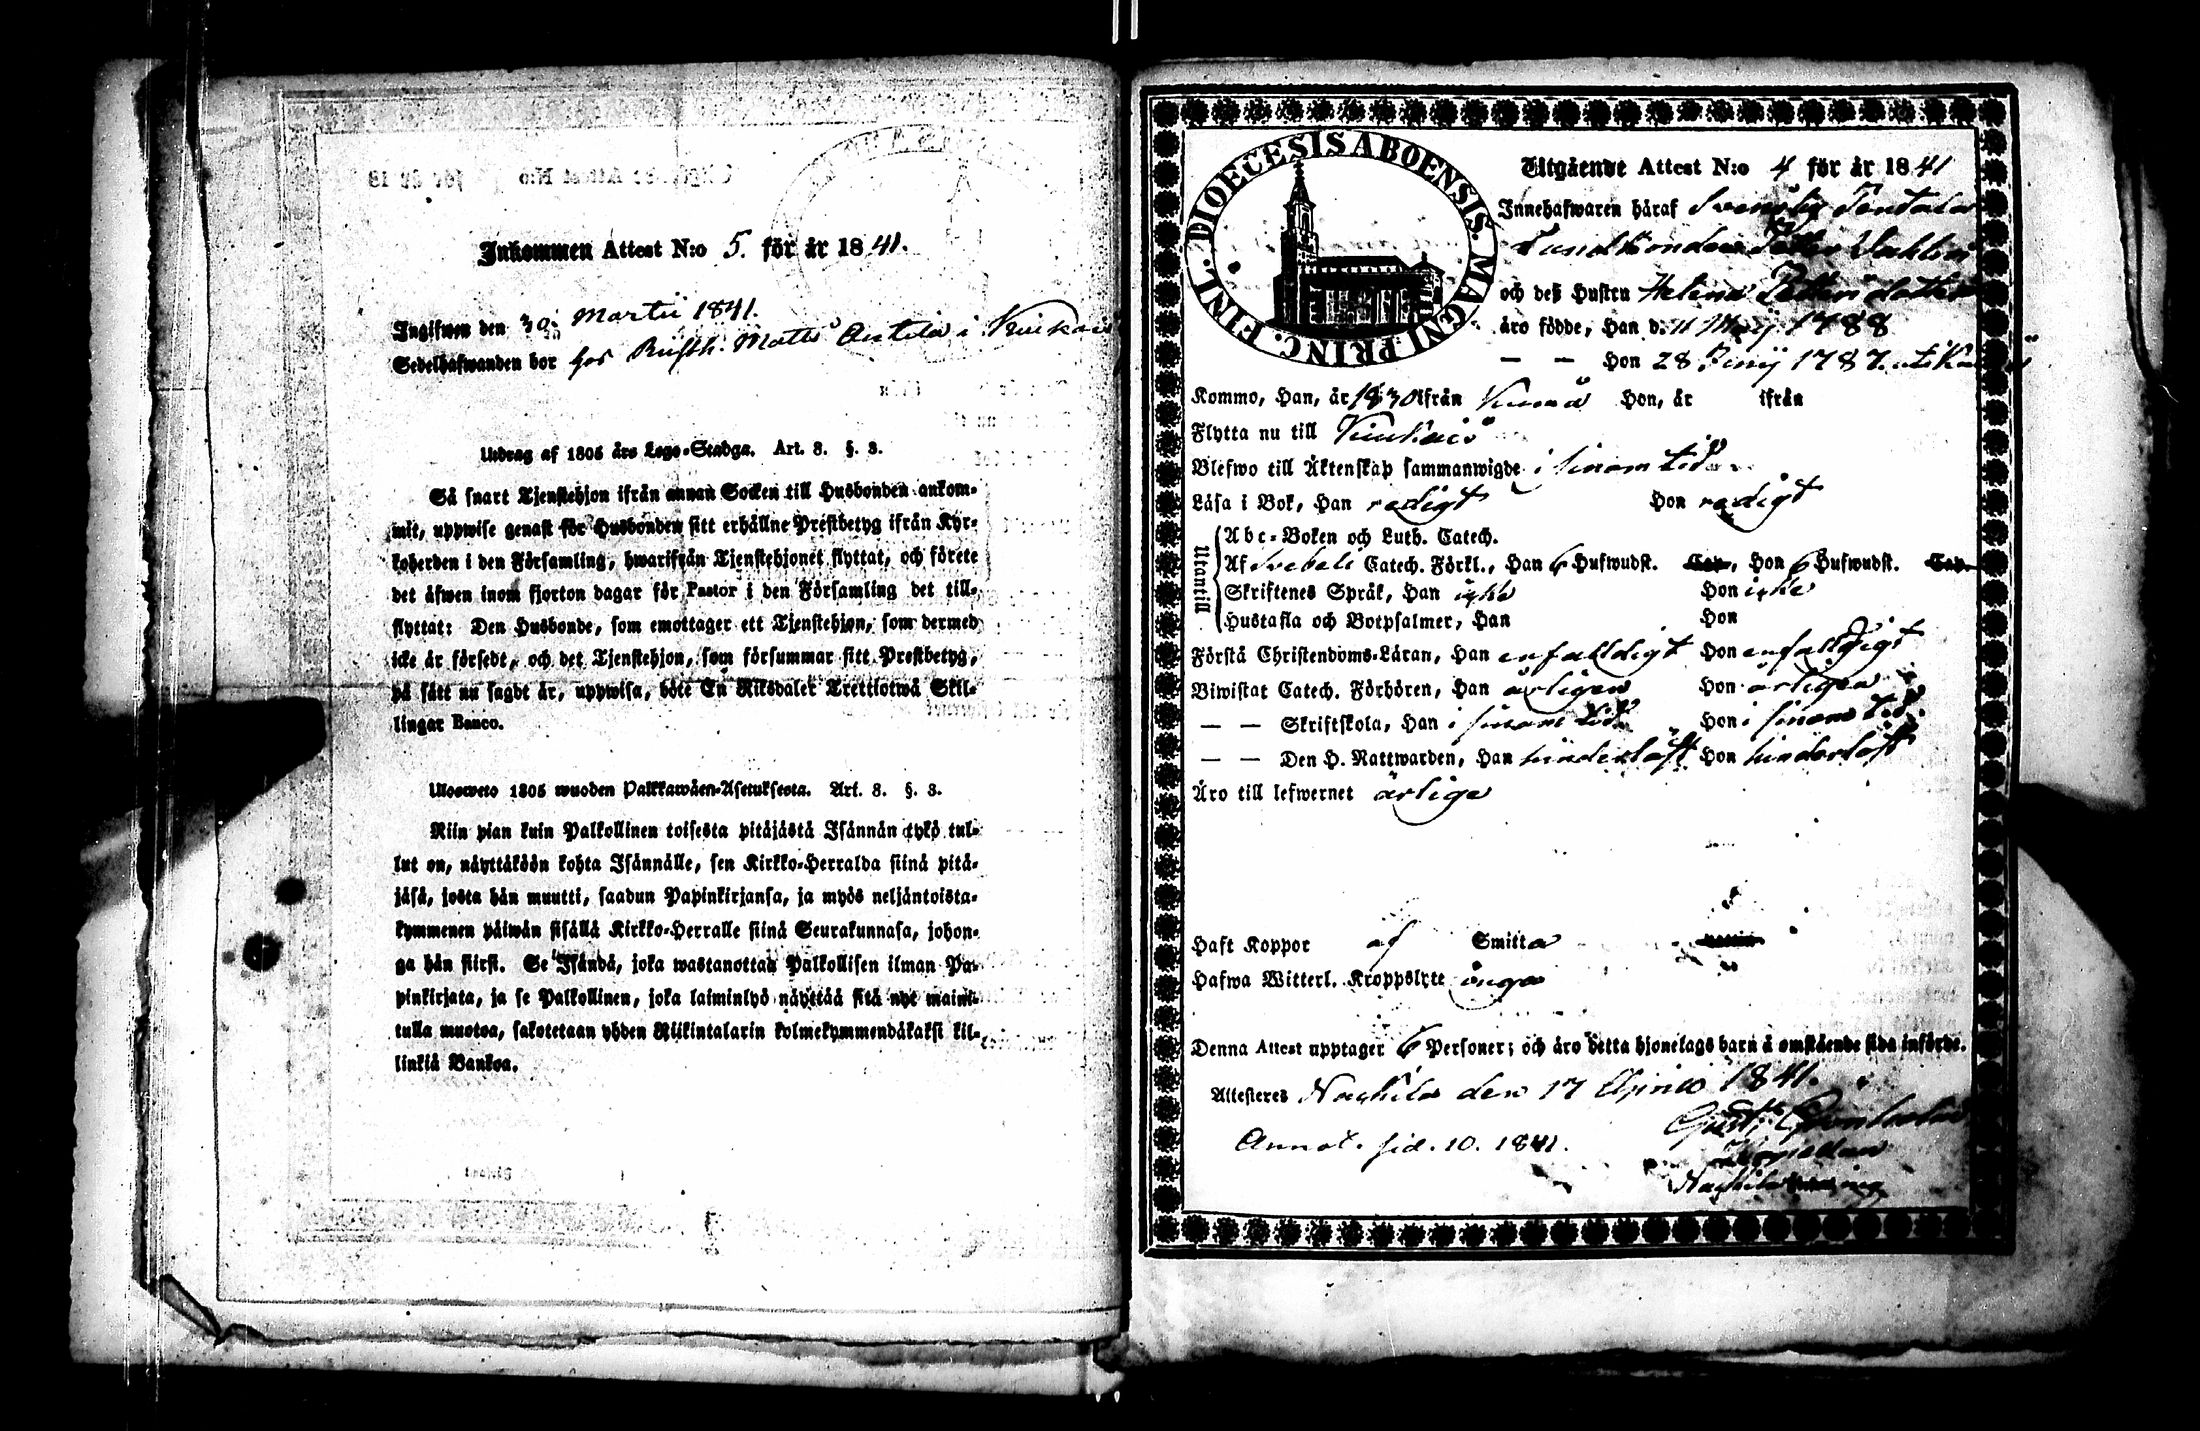 Inkommen Attest N:o 5. för år 1841.
Ingifwen den 30 Martii 1841.
Sedelhafwanden bor hos Rusth. Matts Antila i Kiukais
Utdrag af 1805 års Lego-Stadga. Art. 3. §. 3.
Så snart Tjenstehjon ifrån annan Socken till Husbonden ankom-
mit, uppwise genast för Husbonden sitt erhållne Prestbetyg ifrån Kyr-
koherden i den Församling, hwarifrån Tjenstehjonet flyttat, och förete
det äfwen inom fjorton dagar för Pastor i den Församling det till-
flyttat: Den Husbonde, som emottager ett Tjenstehjon, som dermed
icke är försedt, och det Tjenstehjon, som försummar sitt Prestbetyg,
på sätt nu sagdt är, uppwisa, böte En Riksdaler Trettiotwå Skil-
lingar Banco.
Ulosweto 1805 wuoden Palkkawäen-Asetuksesta. Art. 3. §. 3.
Niin pian kuin Palkollinen toisesta pitäjästä Isännän tykö tul-
lut on, näyttäköön kohta Isännälle, sen Kirkko-Herralda siinä pitä-
jäsä, josta hän muutti, saadun Papinkirjansa, ja myös neljäntoista-
kymmenen päiwän sisällä Kirkko-Herralle siinä Seurakunnasa, johon-
ga hän siirst. Se Isändä, joka wastanottaa Palkollisen ilman Pa-
pinkirjata, ja se Palkollinen, joka laiminlyö näyttää sitä nyt maini-
tulla muotoa, sakotetaan yhden Riikintalarin kolmekymmendäkaksi kil-
linkiä Bankoa.
DIOECESIS ABOENSIS. MAGNI PRINC. FINL.
Utgående Attest N:o 4 för år 1841
Innehafwaren häraf
Petter Dahlin
och deß Hustru Helena Pettersdotter
äro födde, Han d. 11 Maji 1788
— — Hon 28 Junij 1787.
Kommo, Han, år 1830 ifrån Kumo Hon, år ifrån
Flytta nu till Kiukais
Blefwo till Äktenskap sammanwigde i sinom tid
Läsa i Bok, Han redigt Hon redigt
Utantill
Abc-Boken och Luth. Catech.
Af Svebeli Catech. Förkl., Han 6 Hufwudst. Cap., Hon 6 Hufwudst. Cap.
Skriftenes Språk, Han icke Hon icke
Hustafla och Botpsalmer, Han Hon
Förstå Christendoms-Läran, Han enfaldigt Hon enfaldigt
Biwistat Catech. Förhören, Han årligen Hon årligen
— — Skriftskola, Han i sinom tid Hon i sinom tid.
— — Den H. Nattwarden, Han hinderlöst Hon hinderlöst
Äro till lefwernet ärliga
Haft Koppor af Smitta
Hafwa Witterl. Kroppslyte inga
Denna Attest upptager 6 Personer; och äro detta hjonelags barn å omstående sida införde.
Attesteras Nackila den 17 1841.
Annot. sid. 10. 1841.
Nackila